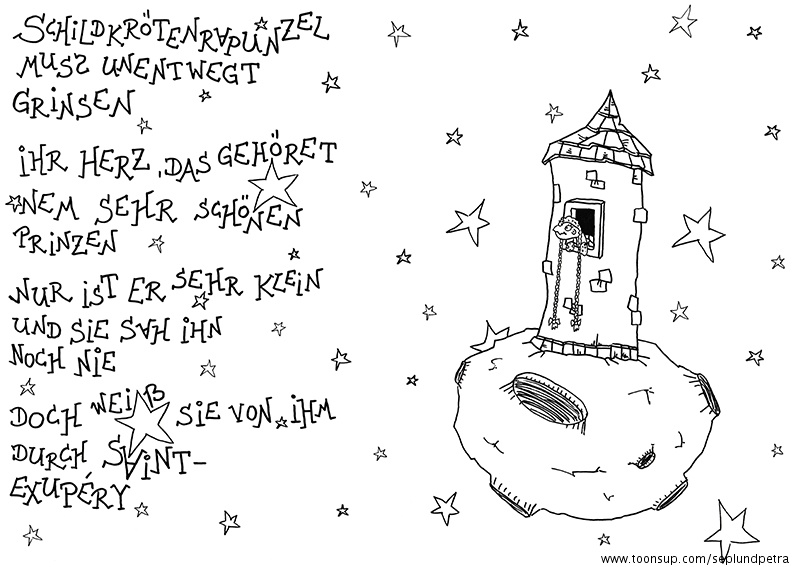 SCHILDKRÖTENRAPUNZEL
MUSS UNENTWEGT
GRINSEN
IHR HERZ, DAS GEHÖRET
NEM SEHR SCHÖNEN
PRINZEN
NUR IST ER SEHR KLEIN
UND SIE SAH IHN
NOCH NIE
DOCH WEIß SIE VON IHM
DURCH SAINT-
EXUPÉRY
www.toonsup.com/seplundpetra